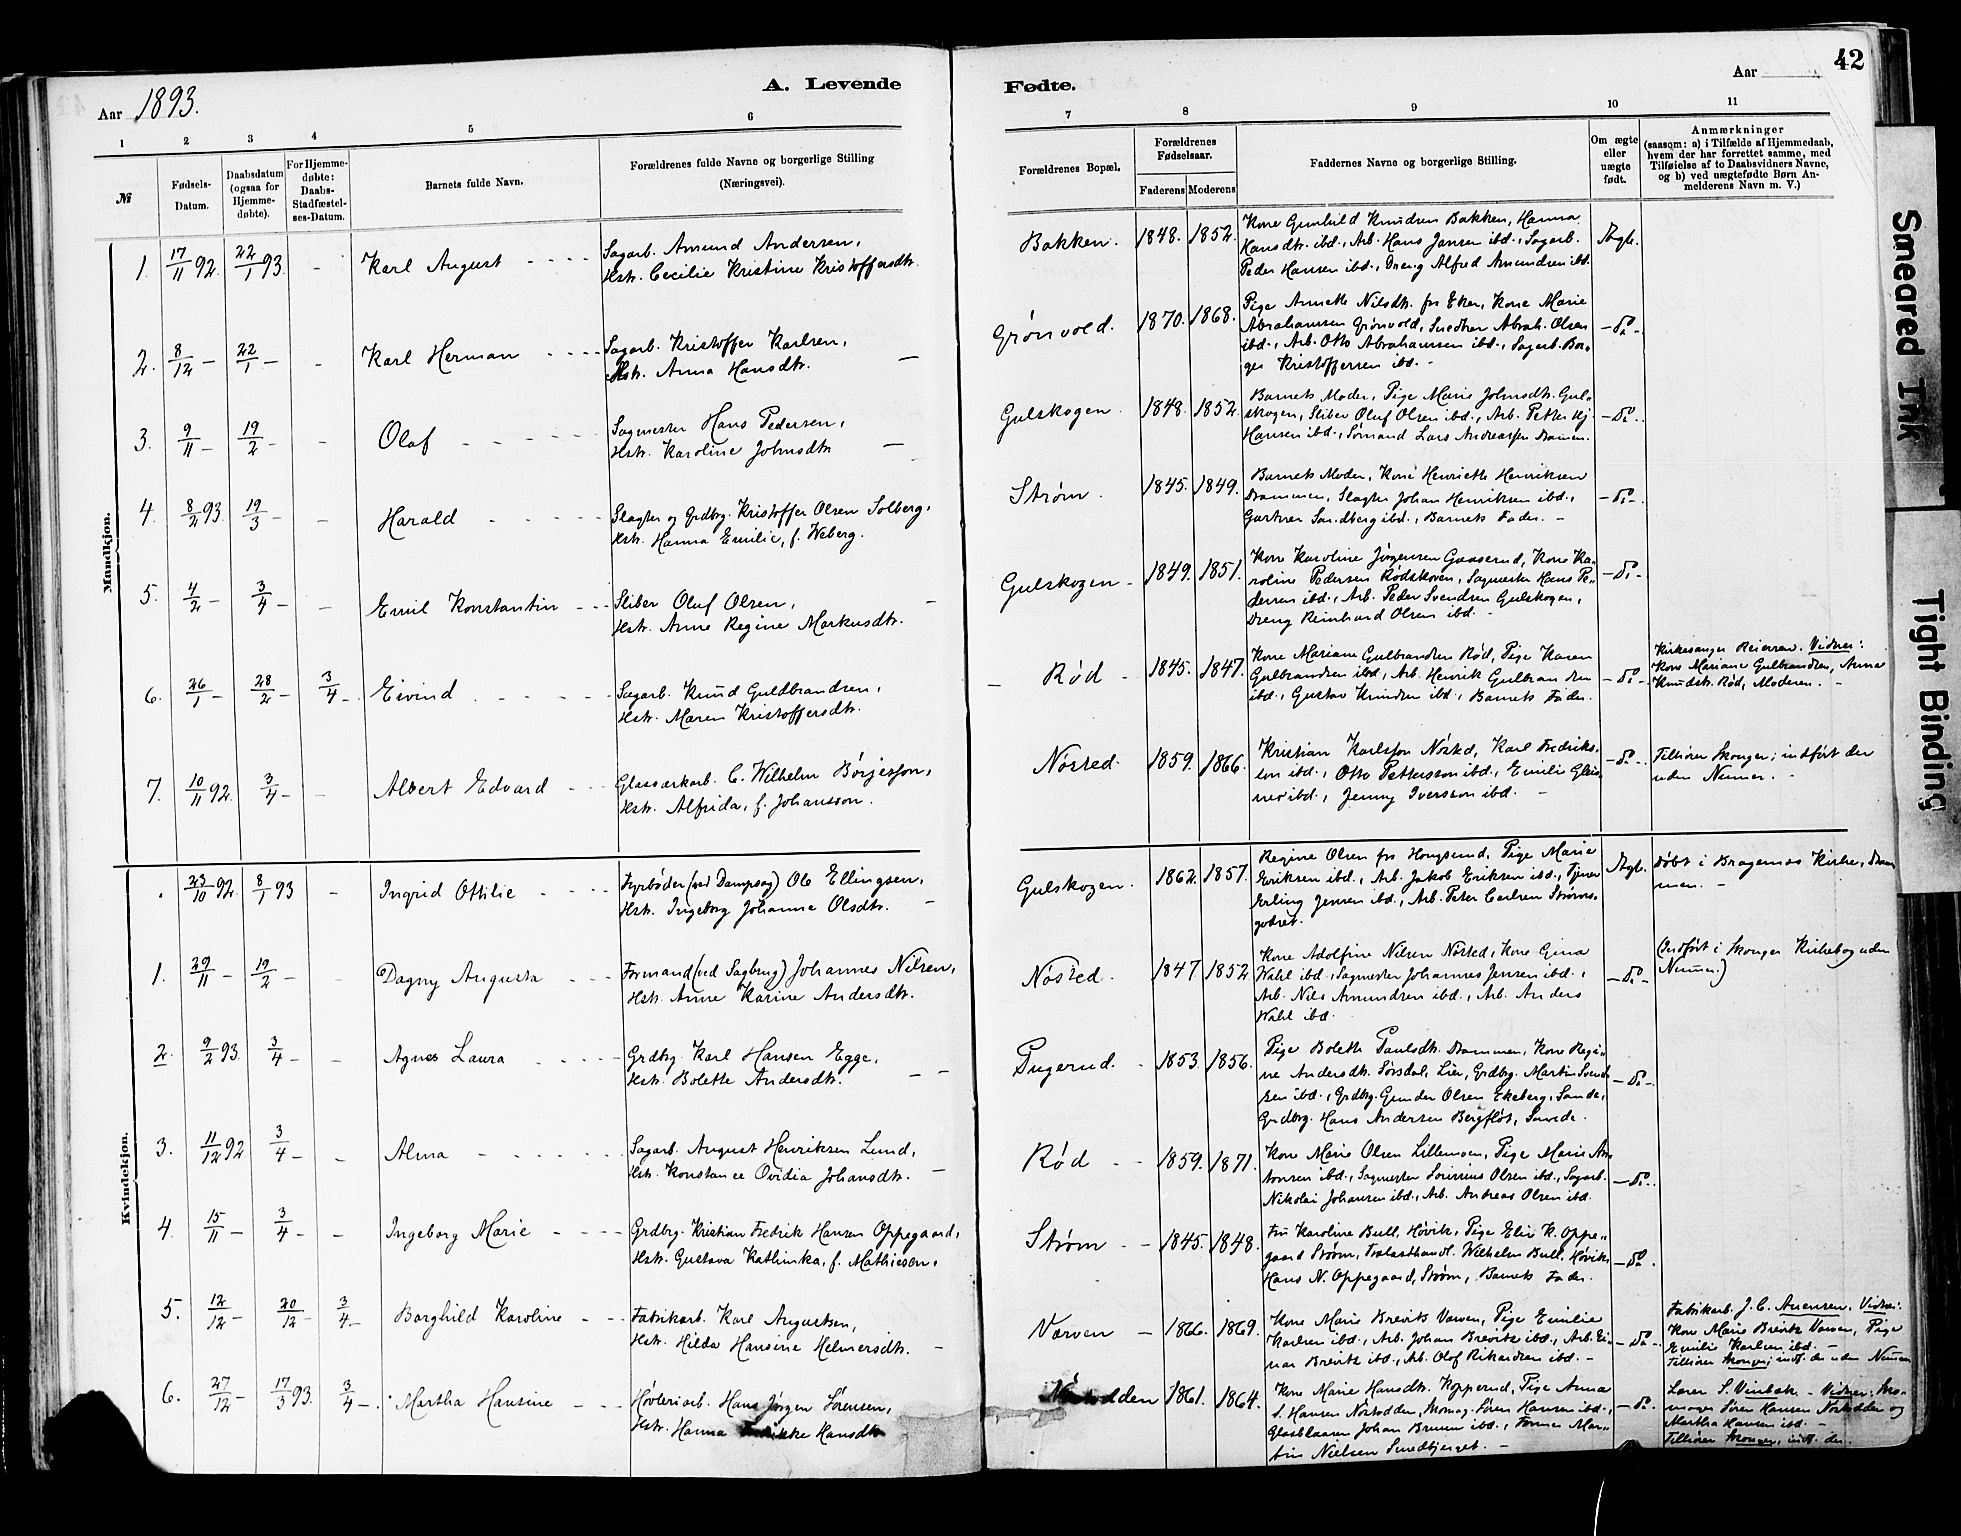 42
Aar 1893.
A. Levende
Fødte.
Aar
1 2 3 4 5 6
7 8 9 10 11
№
Fødsels-Datum.
Daabsdatum (ogsaa for Hjemme-døbte).
For Hjemme-døbte: Daabs-Stadfæstel-ses-Datum.
Barnets fulde Navn.
Forældrenes fulde Navne og borgerlige Stilling (Næringsvei).
Forældrenes Bopæl.
Forældrenes Fødselsaar.
Faderens Moderens
Faddernes Navne og borgerlige Stilling.
Om ægte eller uægte født.
Anmærkninger
(saasom: a) i Tilfælde af Hjemmedaab,
hvem der har forrettet samme, med
Tilføielse af to Daabsvidners Navne,
og b) ved uægtefødte Børn An-
melderens Navn m. V.)
Mandkjøn.
1. 17/11 92. 22/1 93. - Karl August
Sagarb. Amund Andersen,
Hstr. Cecilie Kristine Kristoffersdtr.
Bakken. 1848. 1852.
Kone Gunhild Knudsen Bakken, Hanna
Hansdtr. ibd., Arb. Hans Jensen ibd., Sagarb.
Peder Hansen ibd., Dreng Alfred Amundsen ibd.
Ægte.
2. 8/12 - 22/1 - - Karl Herman
Sagarb. Kristoffer Karlsen,
Hstr. Anna Hansdtr. -
Grønvold. 1870. 1868.
Pige Annette Nilsdtr. fra Eker, Kone Marie
Abrahamsen Grønvold, Snedker Abrah. Olsen
ibd., Arb. Otto Abrahamsen ibd., Sagarb. Bor-
ger Kristoffersen ibd. -
- do -
3. 9/11 - 19/2 - - Olaf
Sagmester Hans Pedersen,
Hstr. Karoline Johnsdtr. -
Gulskogen. 1848. 1852.
Barnets Moder, Pige Marie Johnsdtr. Gul-
skogen, Sliber Oluf Olsen ibd., Arb. Petter Hj.
Hansen ibd., Sømand Lars Andreassen Drammen.
- do -
4. 8/2 93. 19/3 - - Harald
Slagter og Grdbrg. Kristoffer Olsen Solberg,
Hstr. Hanna Emilie, f. Weberg.
Strøm. 1845. 1849.
Barnets Moder, Kone Henriette Henriksen
Drammen, Slagter Johan Henriksen ibd.,
Gartner Sandberg ibd., Barnets Fader. -
- do -
5. 4/2 - 3/4 - - Emil Konstantin
Sliber Oluf Olsen,
Hstr. Anne Regine Markusdtr. -
Gulskogen - 1849. 1851.
Kone Karoline Jørgensen Gaaserud, Kone Ka-
roline Pedersen Rødskoven, Sagmester Hans Pe-
dersen ibd., Arb. Peder Svendsen Gulskogen,
Dreng Reinhard Olsen ibd. -
- do -
6. 26/1 - 28/2 - 3/4 - Eivind
Sagarb. Knud Guldbrandsen,
Hstr. Maren Kristoffersdtr.
- Rød - 1845. 1847.
Kone Mariane Gulbrandsen Rød, Pige Karen
Gulbrandsen ibd., Arb. Henrik Gulbrandsen
ibd., Gustav Knudsen ibd., Barnets Fader.
- do -
Kirkesanger Reiersen. Vidner:
Kone Mariane Gulbrandsen, Anna
Knudstr. Rød, Moderen. -
7. 10/11 92. 3/4 - - Albert Edvard
Glasværkarb. C. Wilhelm Börjesson,
Hstr. Alfrida, f. Johansson.
Nøsted. 1859. 1866.
Kristian Karlsson Nøsted, Karl Fredriks-
sen ibd., Otto Pettersson ibd., Emilie Glas-
ner ibd., Jenny Iversson ibd. -
- do -
Tilhører Skoger; indført der
uden Numer. -
Kvindekjøn.
. 23/10 92. 8/1 93 - Ingrid Ottilie
Fyrbøder (ved Dampsag) Ole Ellingsen,
Hstr. Ingeborg Johanne Olsdtr. -
Gulskogen. 1862. 1857.
Regine Olsen fra Hougsund, Pige Marie
Eriksen ibd., Arb. Jakob Eriksen ibd., Tjener
Erling Jensen ibd., Arb. Peter Carlsen Strøms-
godset.
Ægte.
Døbt i Bragernes Kirke, Dram-
men. -
1. 29/11 - 19/2 - - Dagny Augusta
Formand (ved Sagbrug) Johannes Nilsen,
Hstr. Anne Karine Andersdtr.
Nøsted. 1847 1852
Kone Adolfine Nilsen Nøsted, Kone Gina
Wahl ibd., Sagmester Johannes Jensen ibd.,
Arb. Nils Amundsen ibd., Arb. Anders
Wahl ibd.
- do -
(Indført i Skoger Kirkebog uden
Numer.)
2. 9/2 93. 3/4 - - Agnes Laura
Grdbrg. Karl Hansen Egge,
Hstr. Bolette Andersdtr. - -
Pugerud. - 1853. 1856.
Pige Bolette Paulsdtr. Drammen, Kone Regi-
ne Andersdtr. Sørsdal, Lier, Grdbrg. Martin Svend-
sen ibd., Grdbrg. Gunder Olsen Ekeberg, Sande,
Grdbrg. Hans Andersen Bergflöt, Sande.
- do -
3. 11/12 92 3/4 - - Alma
Sagarb. August Henriksen Lund,
Hstr. Konstance Ovidia Johansdtr. -
Rød - - 1859. 1871.
Kone Marie Olsen Lillemoen, Pige Marie An-
tonsen ibd., Sagmester Lourinius Olsen ibd., Sagarb.
Nikolai Johansen ibd., Arb. Andreas Olsen ibd.
- do -
4. 15/11 - 3/4 - - Ingeborg Marie
Grdbrg. Kristian Fredrik Hansen Oppegaard,
Hstr. Gustava Kathinka, f. Mathiesen.
Strøm - - 1845. 1848.
Fru Karoline Bull, Høvik, Pige Elis K. Oppe-
gaard Strøm, Trælasthandl. Wilhelm Bull, Høvik,
Hans N. Oppegaard, Strøm, Barnets Fader.
- do -
5. 12/12 - 20/12 - 3/4 - Borghild Karoline
Fabrikarb. Karl Augustsen,
Hstr. Hilda Hansine Helmersdtr. -
Varven - 1866. 1869.
Kone Marie Brevik Varven, Pige Emilie
Karlsen ibd., Arb. Johan Brevik ibd., Arb. Ei-
nar Brevik ibd., Arb. Olof Rikardsen ibd. -
- do -
Fabrikarb. J. C. Anensen, Vidner:
Kone Marie Brevik Varven, Pige
Emilie Karlsen ibd. -
Tilhører Skoger; indf. der uden Numer
6. 27/12 - 17/3 93. 3/4 - Martha Hansine
Høvleriarb. Hans Jørgen Sørensen,
Hstr. Hanna Hansdtr.
1861. 1864.
Kone Marie Hansdtr. Kopperud, Pige Anna
S. Hansen Nøstodden, Skomag. Søren Hansen ibd.,
Glasblaaser Johan Bruun ibd., Former Mar-
tin Nielsen Smedbjerget. -
- do -
Lærer S. Vinbæk - Vidner: Sko-
mager Søren Hansen Nøstodden og
Martha Hansen ibd. -
Tilhører Skoger, indf. der.
Smeared Ink
Tight Binding